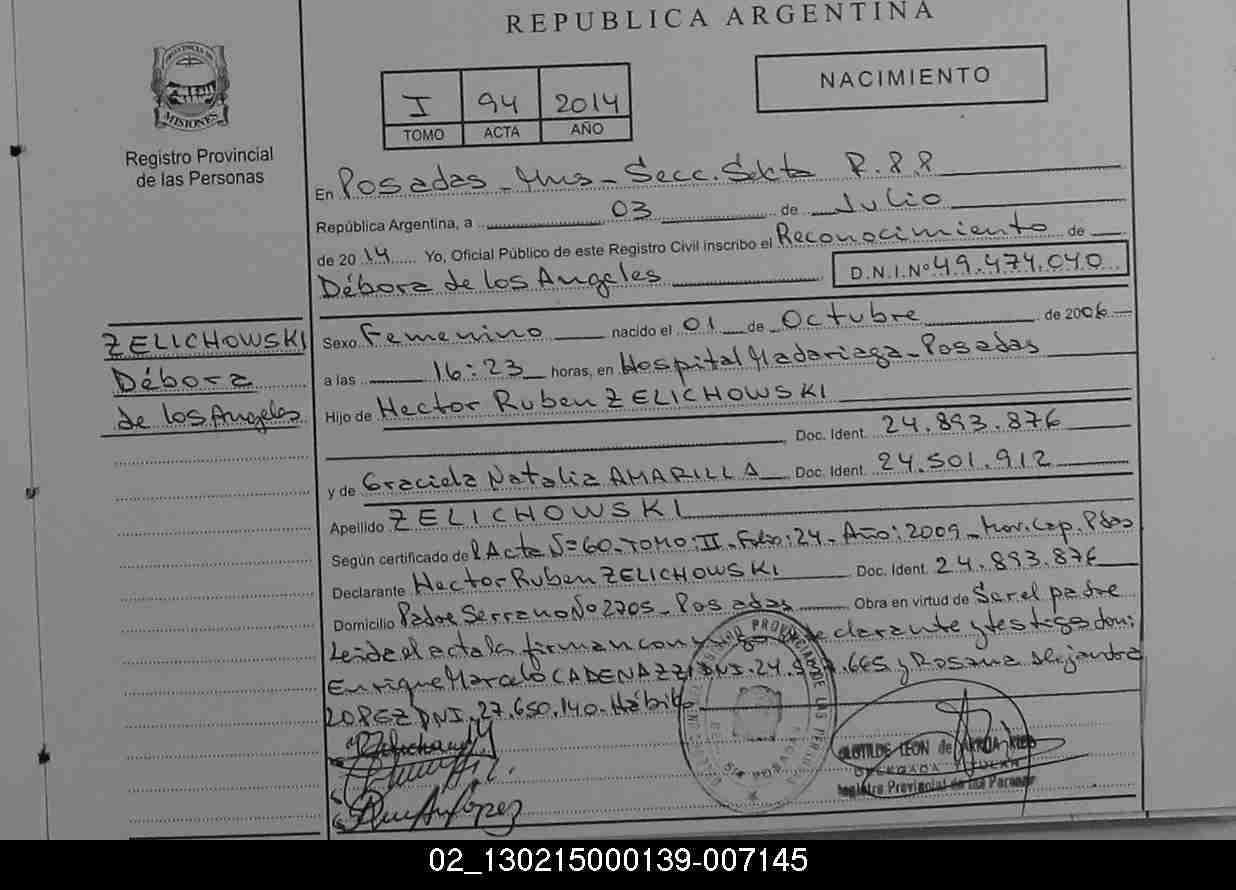 REPUBLICA ARGENTINA
NACIMIENTO
I 94 2014
TOMO ACTA AÑO
MISIONES
Registro Provincial
de las Personas
En Posadas - Mns - Secc. Sexta R.P.P
República Argentina, a 03 de Julio
de 2014 Yo, Oficial Público de este Registro Civil inscribo el Reconocimiento de
Débora de los Angeles D.N.I. Nº 49.474.040
ZELICHOWSKI
Débora
de los Angeles
Sexo Femenino nacido el 01 de Octubre de 2006
a las 16:23 horas, en Hospital Madariaga - Posadas
Hijo de Hector Ruben ZELICHOWSKI
Doc. Ident. 24.893.876
y de Graciela Natalia AMARILLA Doc. Ident. 24.501.912
Apellido ZELICHOWSKI
Según certificado del Acta Nº 60 - TOMO: II - Folio: 24 - Año: 2009 - Mov. Cap. Pdas
Declarante Hector Ruben ZELICHOWSKI Doc. Ident. 24.893.876
Domicilio Padre Serrano Nº 2705 - Posadas Obra en virtud de Ser el padre
Leida el acta la firman con declarante y testigo don:
Enrique Marcelo CADENAZZI DNI. 24. .665 y Rosana Alejandra
LOPEZ DNI. 27.650.140 - Hábil
CLOTILDE LEON de
DELEGADA TITULAR
Registro Provincial de las Personas
02_130215000139-007145